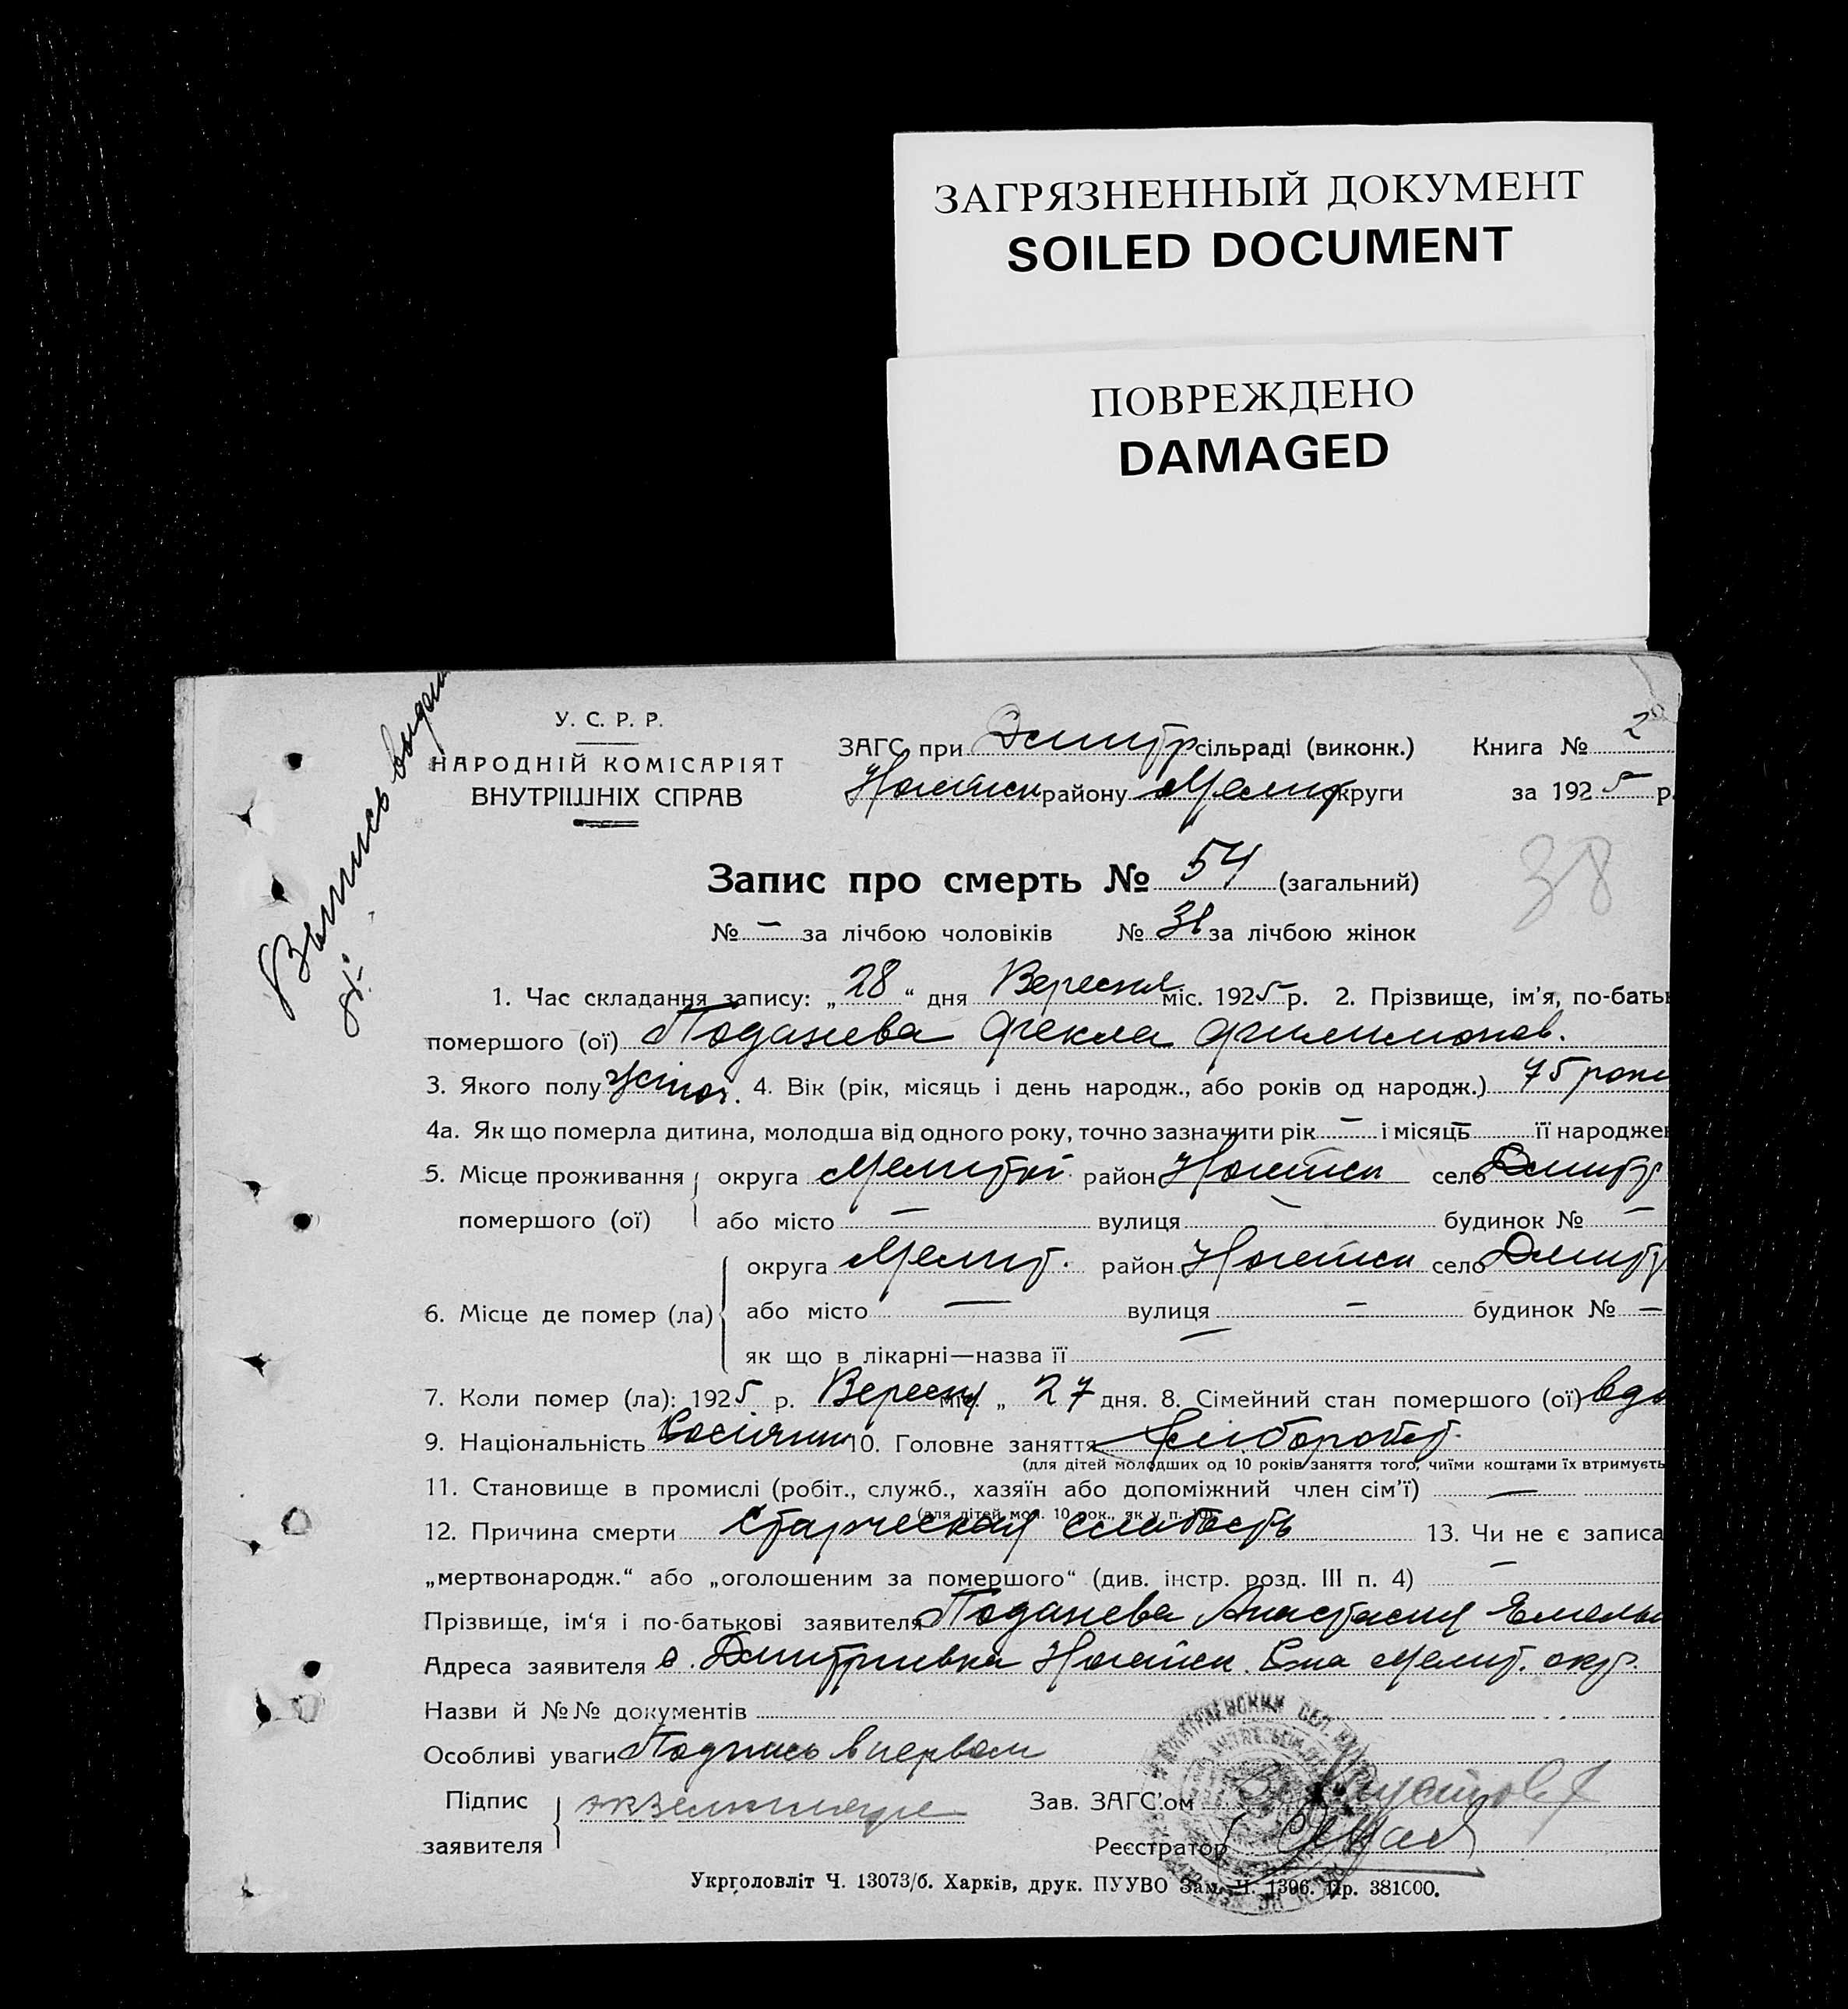 ЗАГРЯЗНЕННЫЙ ДОКУМЕНТ
SOILED DOCUMENT
ПОВРЕЖДЕНО
DAMAGED
Выпись выдан
У. С. Р. Р.
НАРОДНІЙ КОМІСАРІЯТ
ВНУТРІШНІХ СПРАВ
ЗАГС при Дмитр сільраді (виконк.) Книга № 2
Ногайськ району Мелит округи за 1925 р.
Запис про смерть № 54 (загальний)
38
№ – за лічбою чоловіків № за лічбою жінок
1. Час складання запису: „28“ дня Вересня міс. 1925 р. 2. Прізвище, ім’я, по-батьк
помершого (ої) Фекла Филимонов.
3. Якого полу жіноч. 4. Вік (рік, місяць і день народж., або років од народж.) 75 роки
4а. Як що померла дитина, молодша від одного року, точно зазначити рік – і місяць – її народжен
5. Місце проживання округа Мелитої район Ногайськ село Дмитр
помершого (ої) або місто – вулиця – будинок № –
округа Мелит. район Ногайськ село Дмитр
6. Місце де помер (ла) або місто – вулиця – будинок № –
як що в лікарні—назва її –
7. Коли помер (ла): 1925 р. Вересня міс. „ 27 дня. 8. Сімейний стан помершого (ої) вдо
9. Національність 10. Головне заняття Хлібороб
(для дітей молодших од 10 років заняття того, чиїми коштами їх втримуєть
11. Становище в промислі (робіт., служб., хазяїн або допоміжний член сім’ї) –
(для дітей мол. 10 рок., як у п. 10)
12. Причина смерти Старческая слабость 13. Чи не є записа
„мертвонародж.“ або „оголошеним за помершого“ (див. інстр. розд. III п. 4) –
Прізвище, ім‘я і по-батькові заявителя Анастасия Емелья
Адреса заявителя с. Дмитриевка Ногайск. Мелит. окр.
Назви й №№ документів
Особливі уваги Подпись в первом
Підпис экземпляре Зав. ЗАГС’ом
заявителя Реєстратор
Укрголовліт Ч. 13073/б. Харків, друк. ПУУВО Зам. Ч. 1396. Пр. 381000.